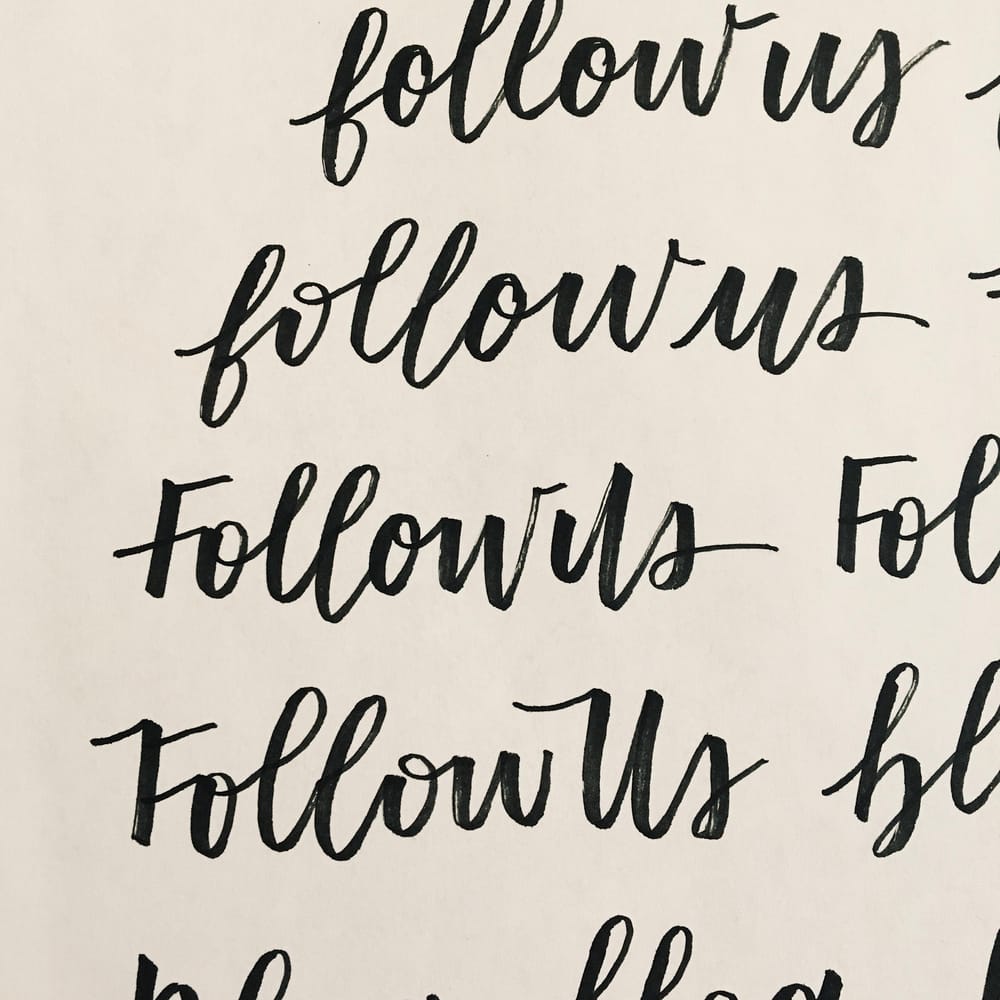 follow us
follow us
Follow Us Fol
Follow Us bl